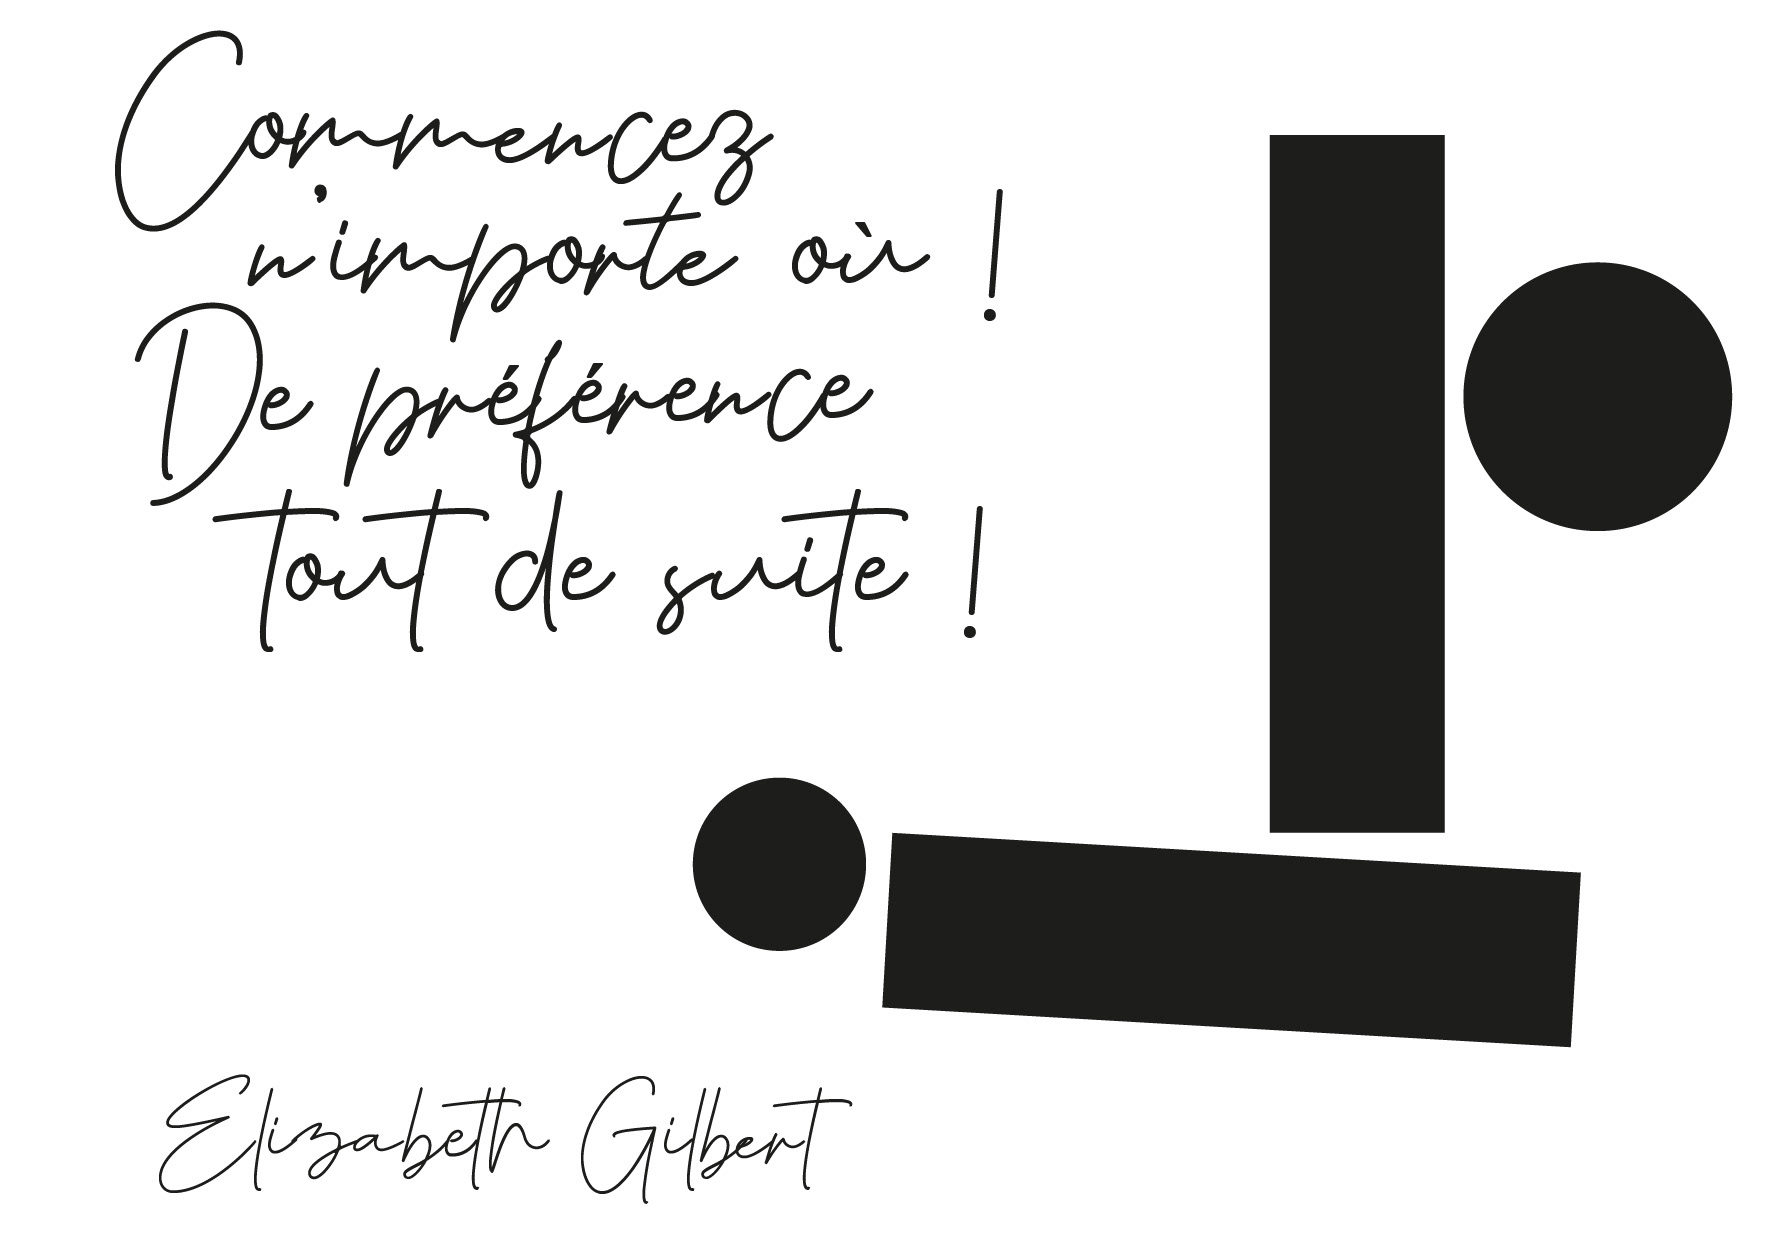 Commencez
n'importe où !
De préférence
tout de suite !
Elizabeth Gilbert